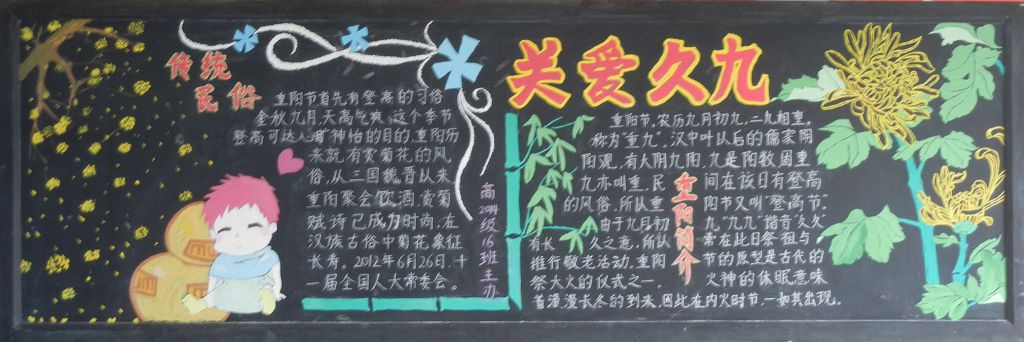 传统
民俗
重阳节首先有登高的习俗
金秋九月,天高气爽,这个季节
登高可达人旷神怡的目的,重阳历
来就有赏菊花的风
俗,从三国魏晋以来
重阳聚会饮酒,赏菊
赋诗已成为时尚,在
汉族古俗中菊花象征
长寿。2012年6月26日,十
一届全国人大常委会。
高2014级16班主办
关爱久九
重阳简介
重阳节,农历九月初九,二九相重,
称为"重九",汉中叶以后的儒家阴
阳观,有六阴九阳,九是阳数,固重
九亦叫重,民间在该日有登高
的风俗,所以重阳节又叫"登高节".
由于九月初九"九九"谐音"久久"
有长久之意,所以常在此日祭祖与
推行敬老活动,重阳节的原型是古代的
祭大火的仪式之一.火神的休眠意味
着漫漫长冬的到来,因此在内火时节,一如其出现。